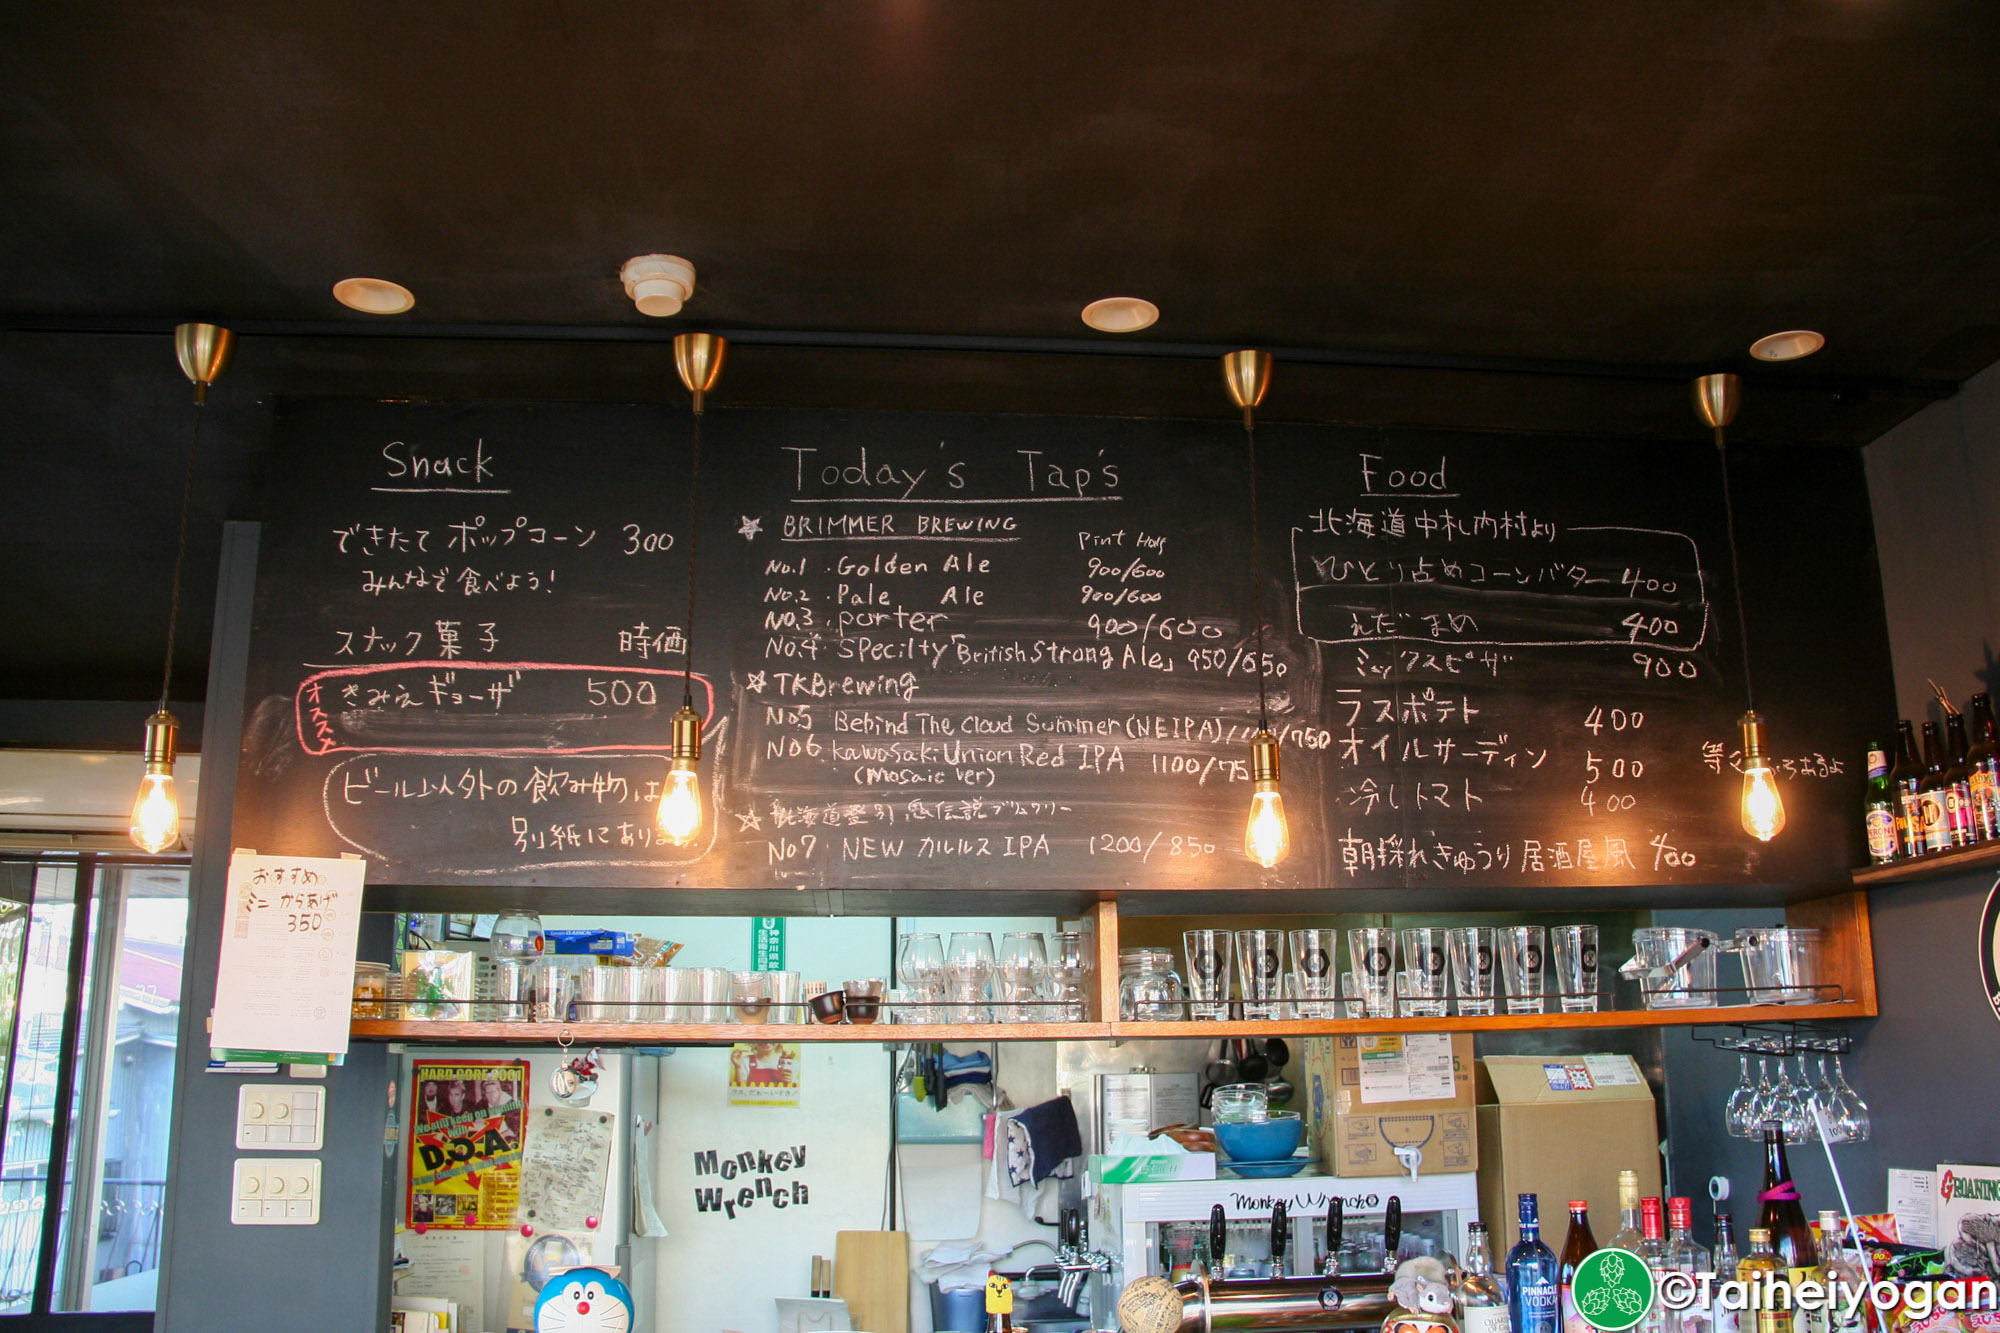 Snack
できたて ポップコーン 300
みんなで食べよう!
スナック菓子 時価
オススメ
きみえギョーザ 500
ビール以外の飲み物は
別紙にあります
おすすめ
ミニ からあげ
350
Today's Tap's
BRIMMER BREWING
Pint Half
No.1 . Golden Ale 900/600
No.2 . Pale Ale 900/600
No.3 . porter 900/600
No.4. Specilty「British Strong Ale」 950/650
TKBrewing
No5 Behind The Cloud Summer (NEIPA) /750
No6. Kawasaki Union Red IPA 1100/75
(Mosaic ver)
北海道登別 鬼伝説ブリュワリー
No7 . NEW カルルス IPA 1200/850
Food
北海道中札内村より
ひとり占めコーンバター 400
えだまめ 400
ミックスピザ 900
ラスポテト 400
オイルサーディン 500
冷しトマト 400
朝採れきゅうり居酒屋風 400
HARD CORE 2001
We still keep on running with
D.O.A.
Monkey
Wrench
Monkey Wrench
PINNACLE
VODKA
GROANING
©Taiheiyogan